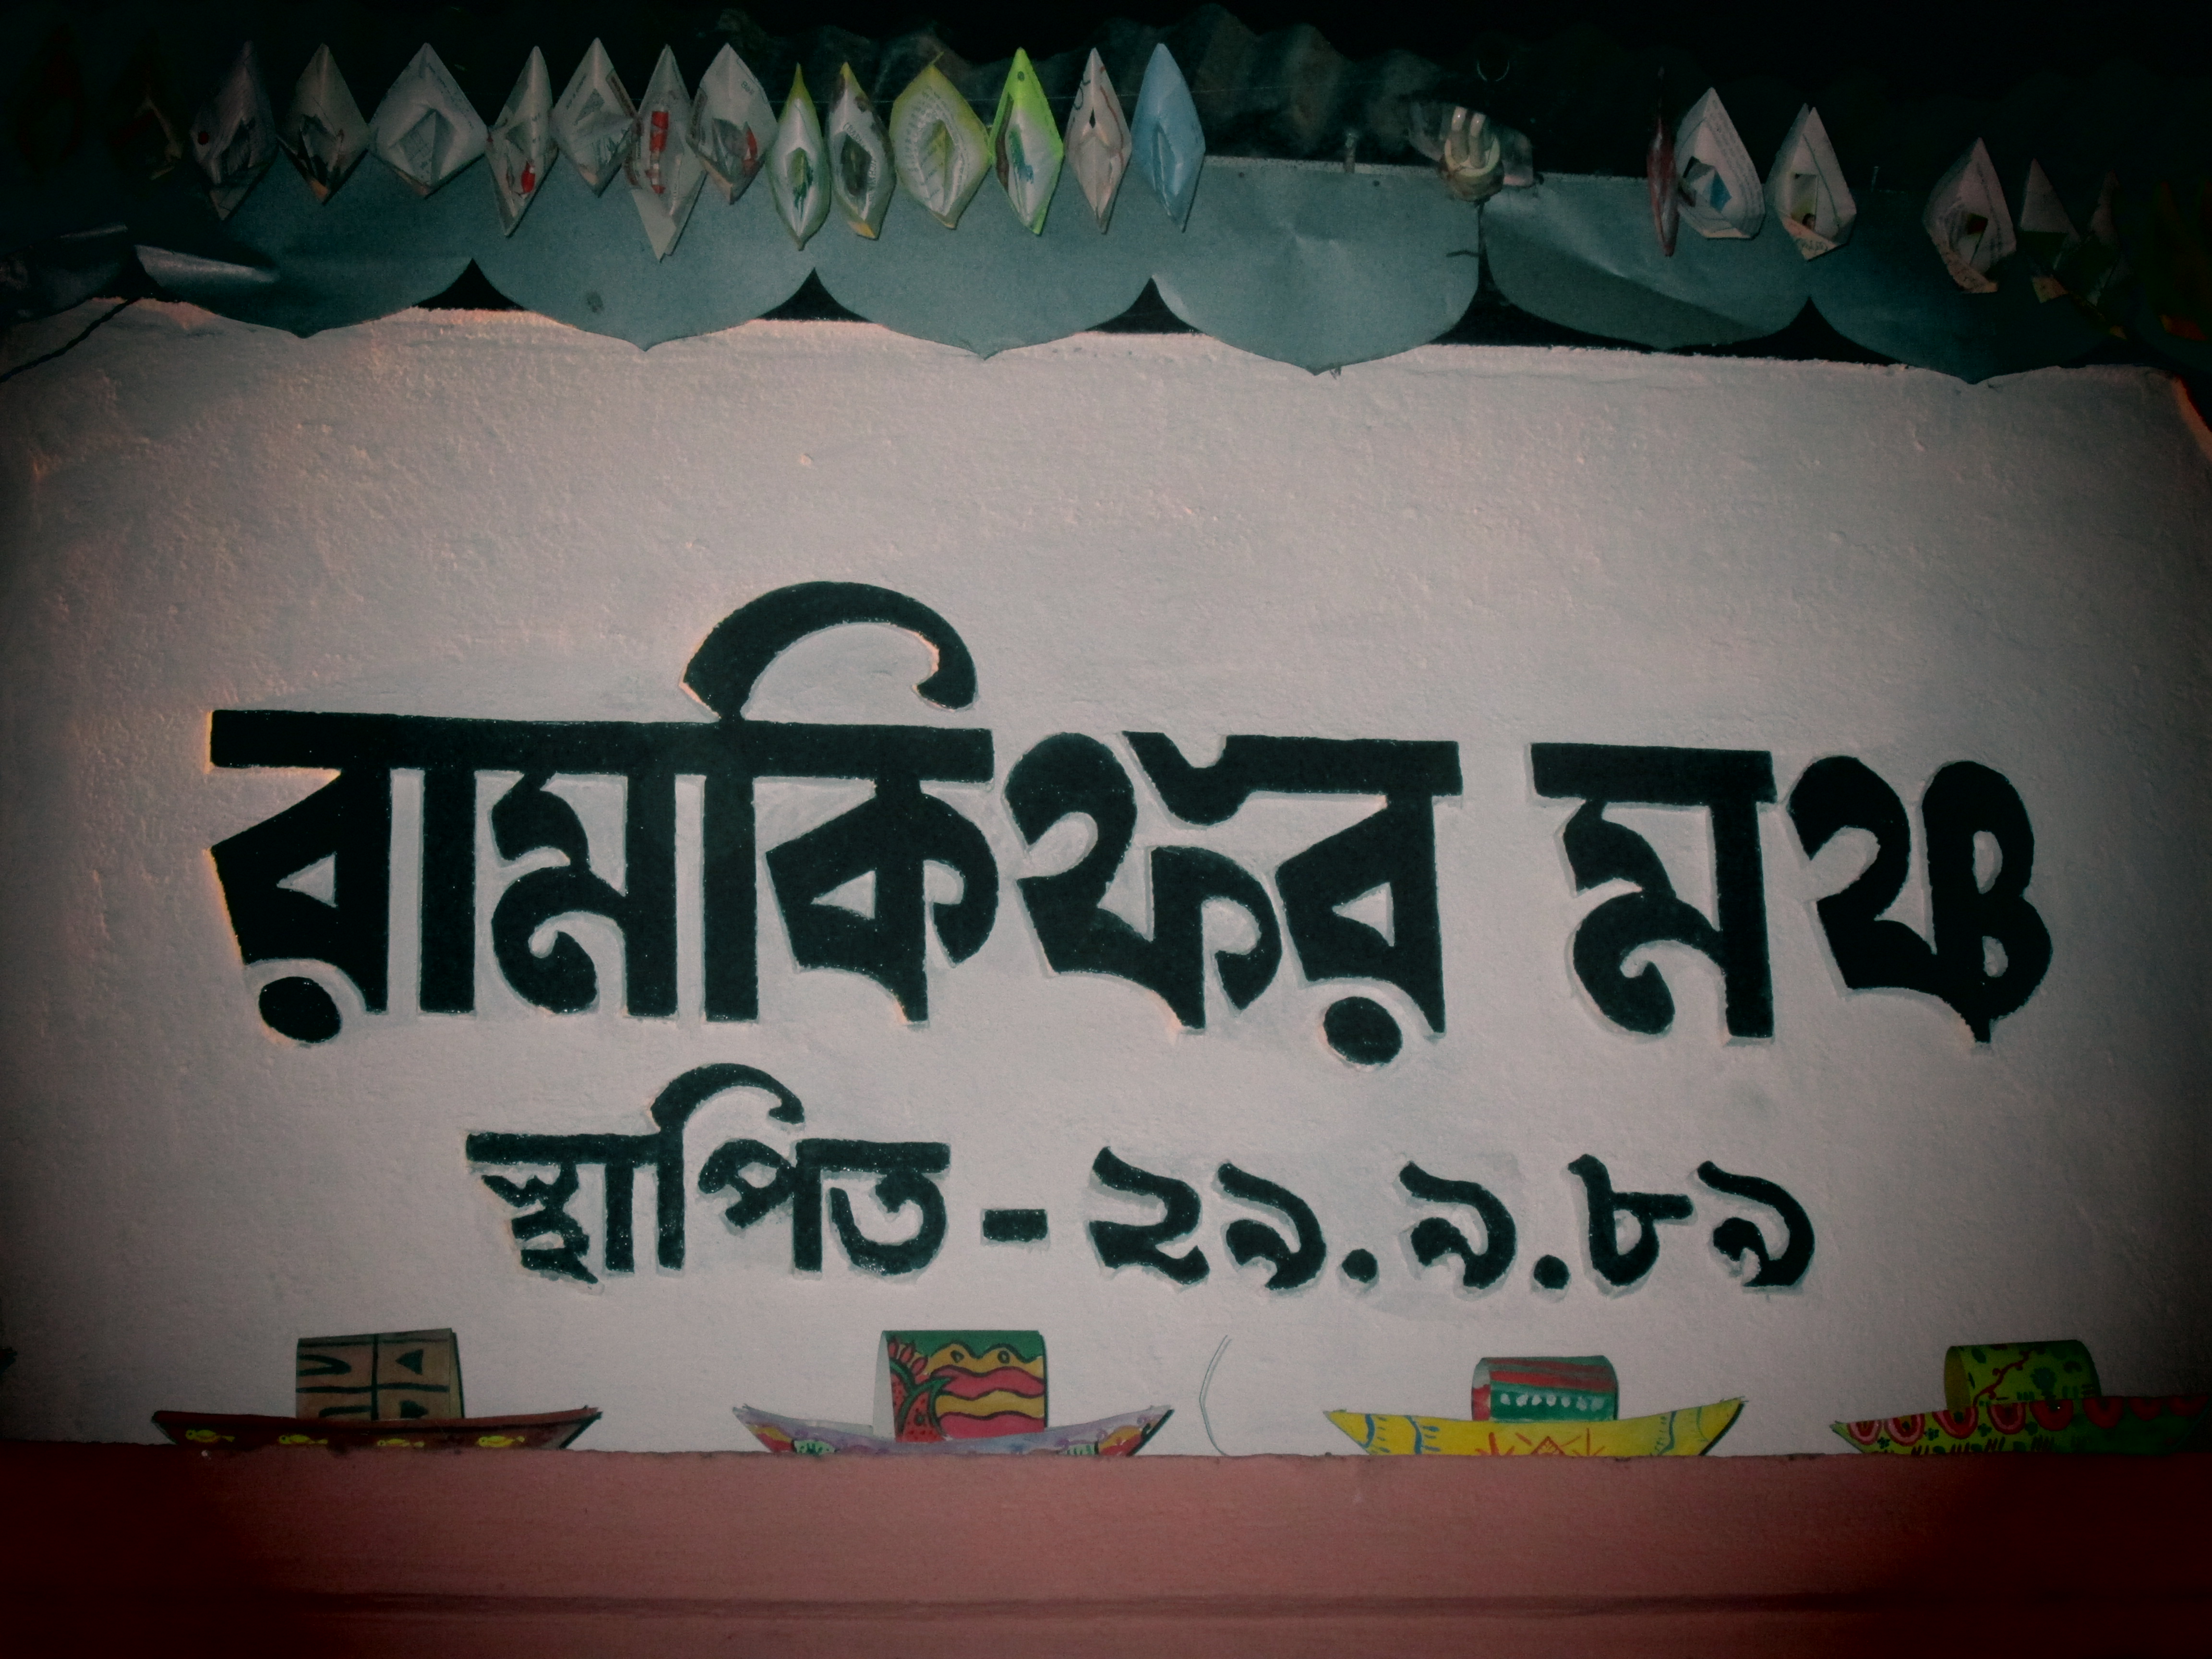 রামকিঙ্কর মঞ্চ
স্থাপিত - ২৯.৯.৮৯